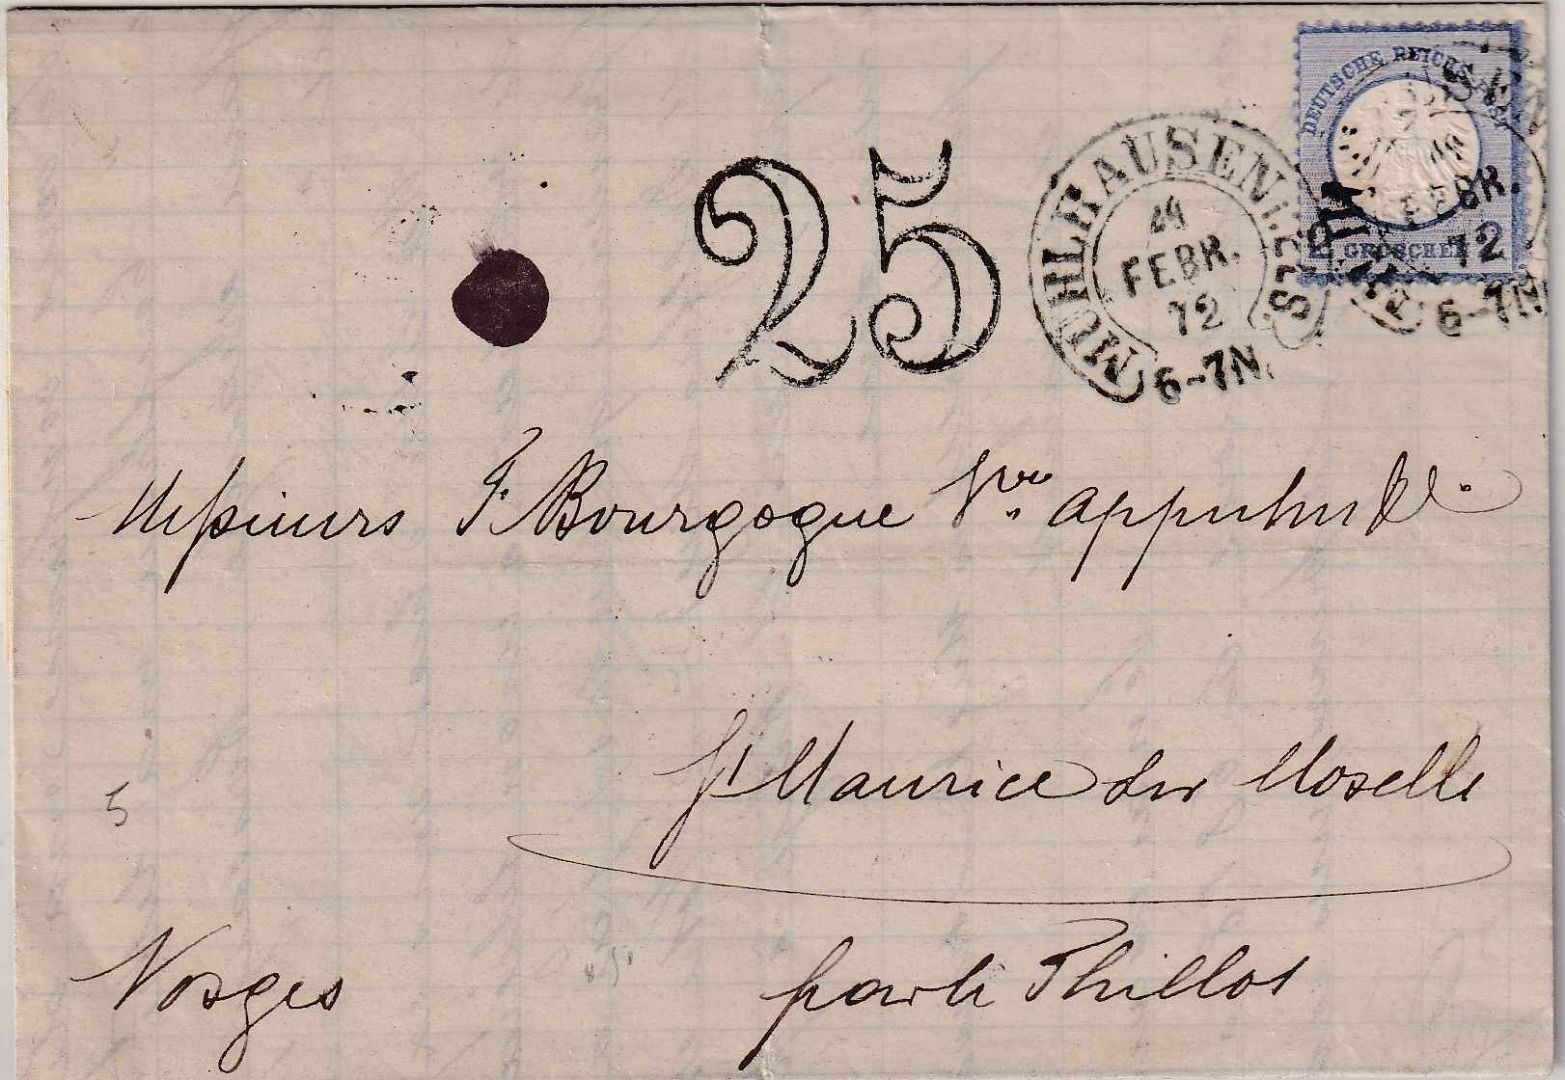 DEUTSCHE REICHS POST
2 GROSCHEN 2
MÜHLHAUSEN i. ELS
24
FEBR.
72
6-7N.
FEBR.
72
6-7N
25
Messieurs F. Bourgogne Vve
St Maurice sur Moselle
5
Vosges par le Thillot